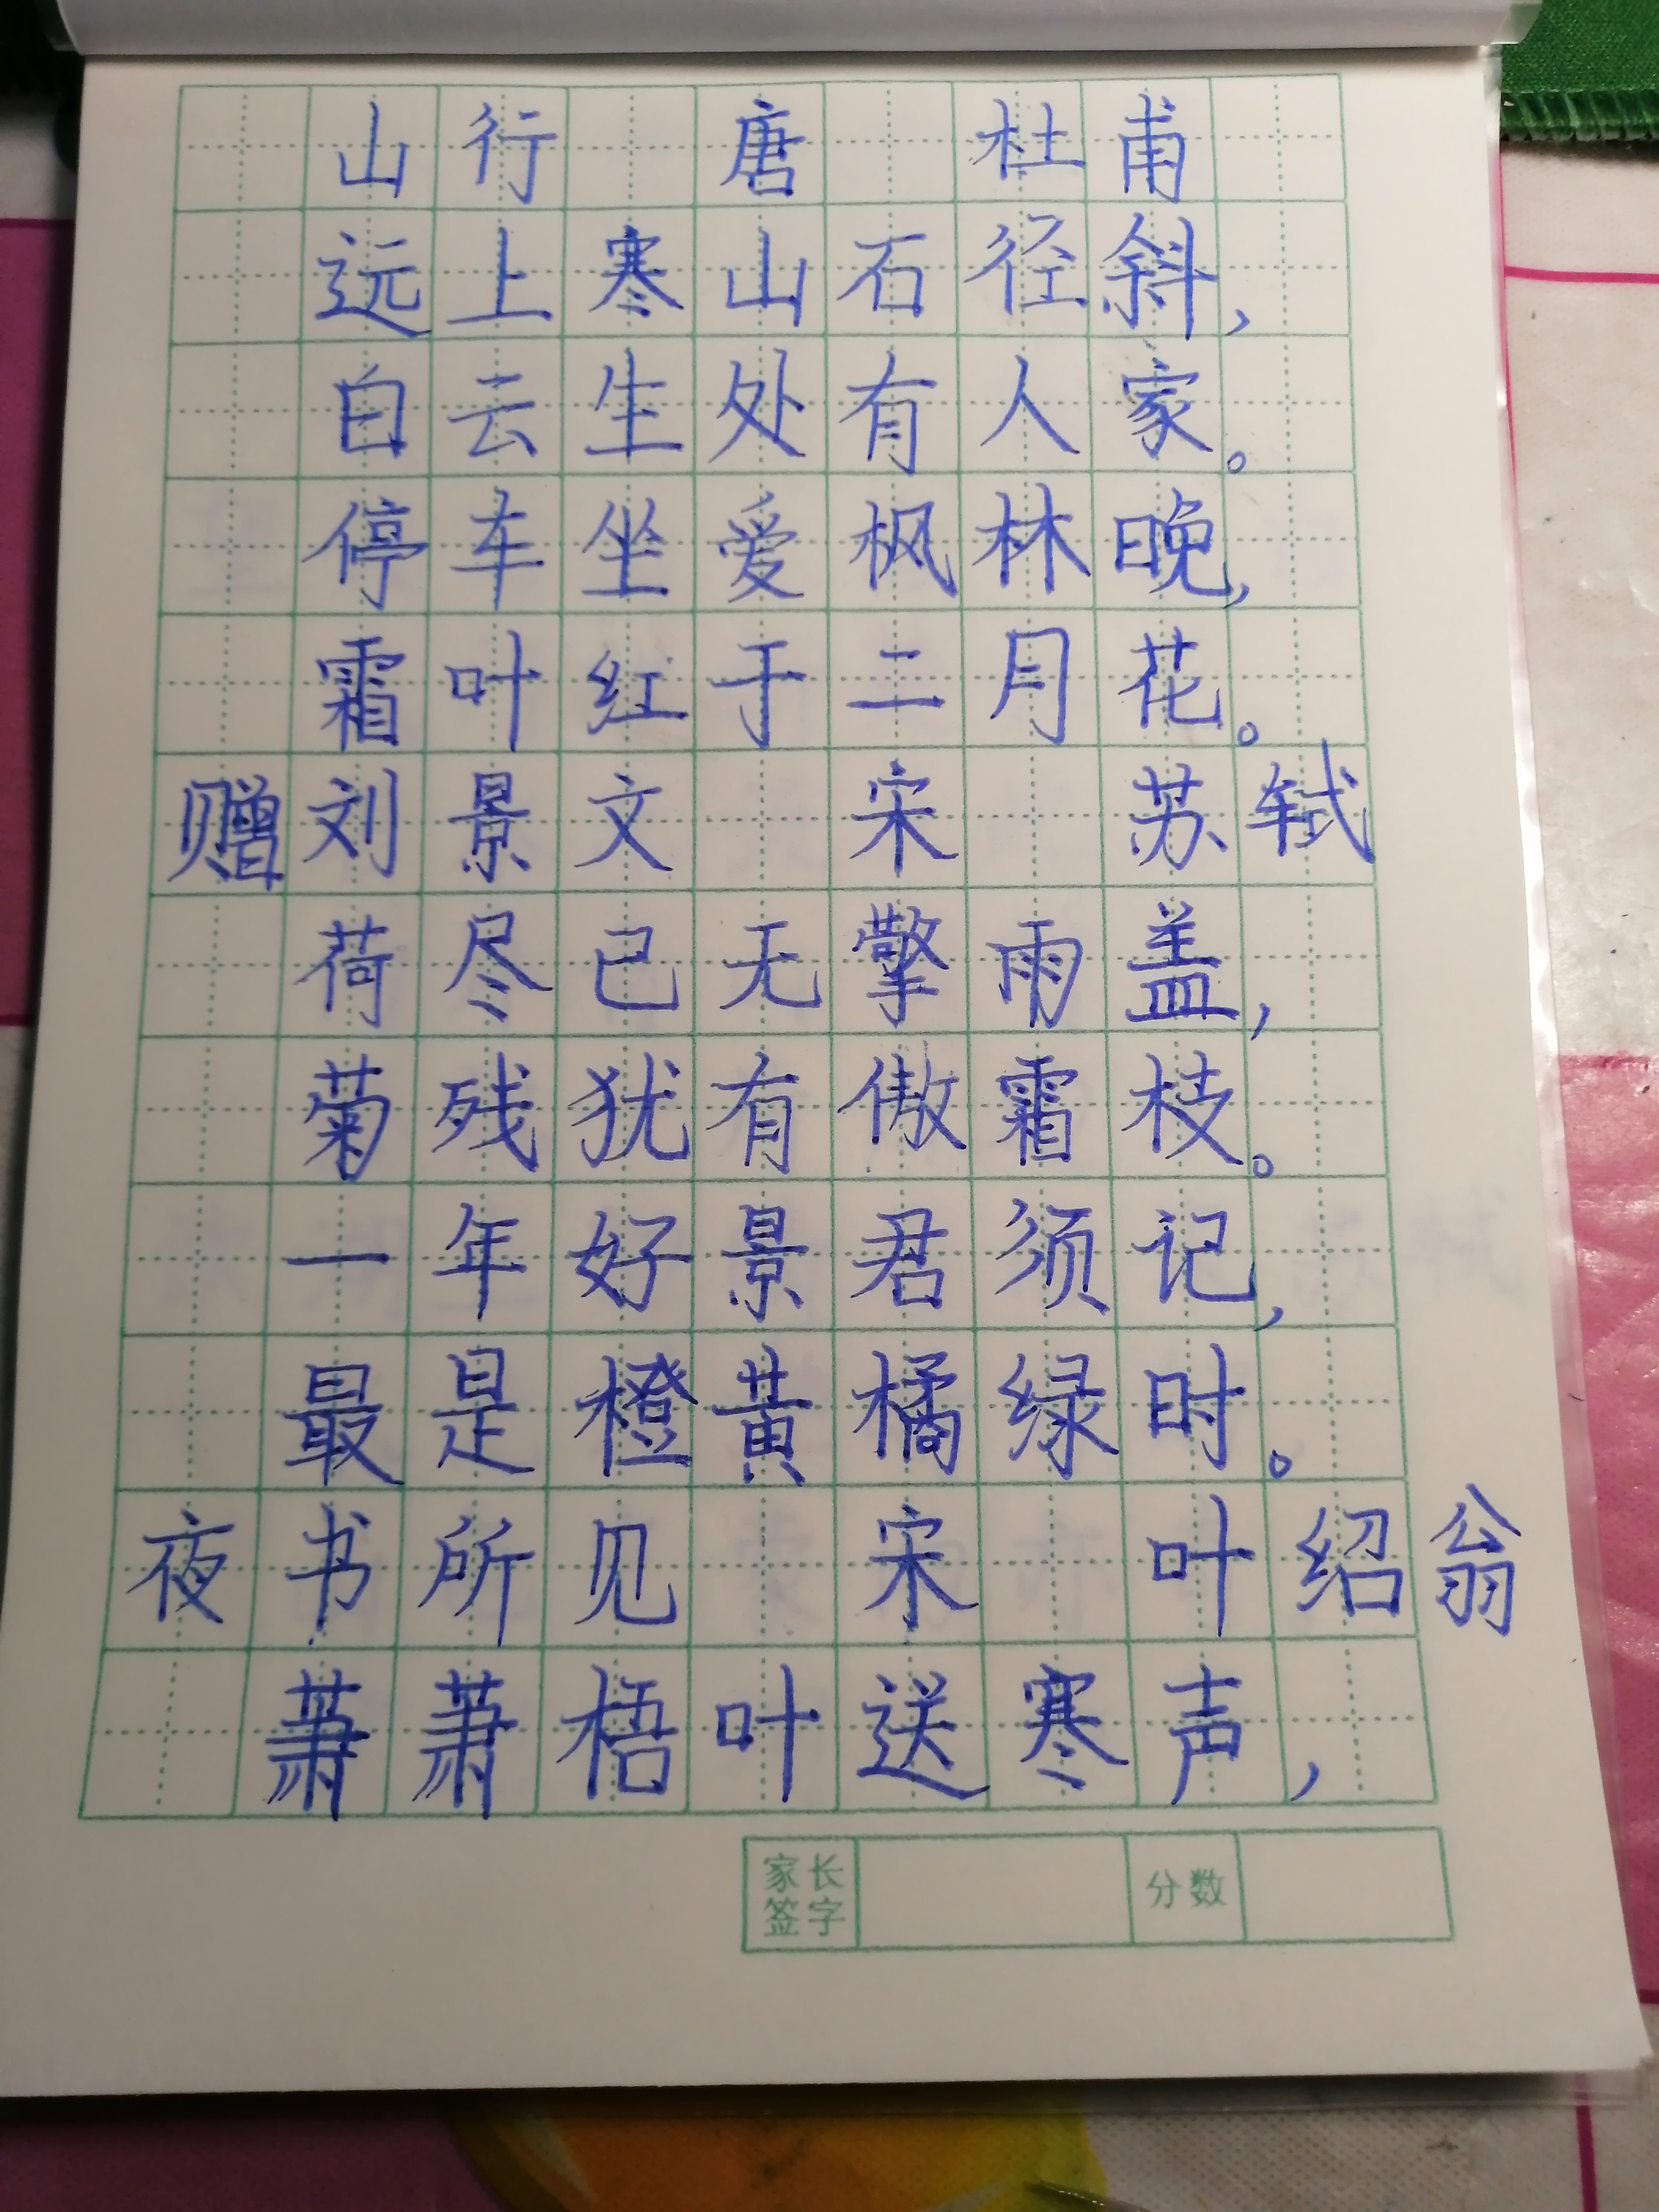 山行 唐 杜甫
远上寒山石径斜，
白云生处有人家。
停车坐爱枫林晚，
霜叶红于二月花。
赠刘景文 宋 苏轼
荷尽已无擎雨盖，
菊残犹有傲霜枝。
一年好景君须记，
最是橙黄橘绿时。
夜书所见 宋 叶绍翁
萧萧梧叶送寒声，
家长签字 分数